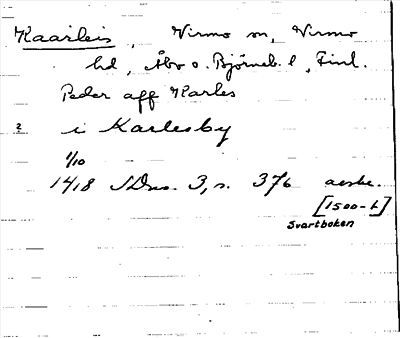 Kaarleis, Virmo sn, Virmo
hd, Åbo o. Björneb. l, Finl.
Peder aff Karles
2 i Karlesby
1/10
1418 SDns. 3, s. 376 avskr.
[1500-t.]
Svartboken